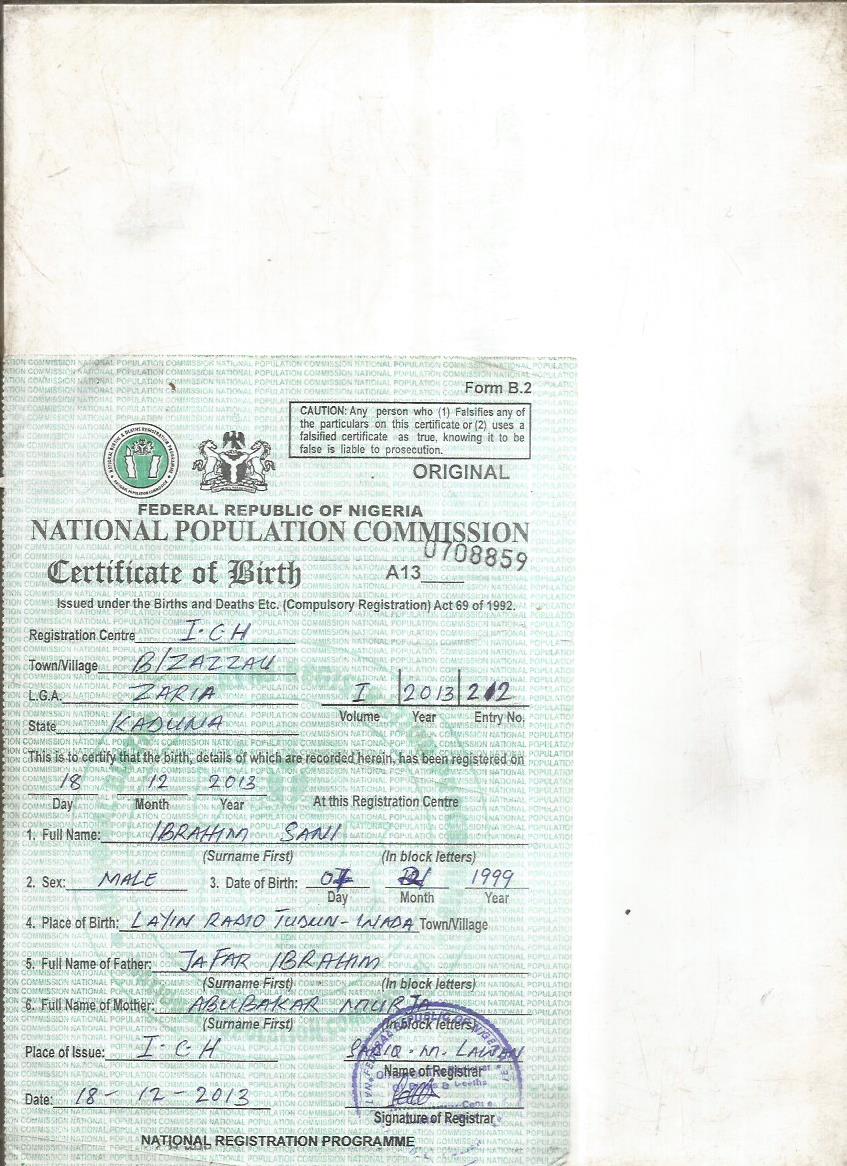 Form B.2
CAUTION: Any person who (1) Falsifies any of
the particulars on this certificate or (2) uses a
falsified certificate as true, knowing it to be
false is liable to prosecution.
ORIGINAL
FEDERAL REPUBLIC OF NIGERIA
NATIONAL POPULATION COMMISSION
0708859
Certificate of Birth A13
Issued under the Births and Deaths Etc. (Compulsory Registration) Act 69 of 1992.
Registration Centre I.C.H
Town/Village B/ZAZZAU
L.G.A. ZARIA I 2013 212
Volume Year Entry No.
State KADUNA
This is to certify that the birth, details of which are recorded herein, has been registered on
18 12 2013
Day Month Year At this Registration Centre
1. Full Name: IBRAHIM SANI
(Surname First) (In block letters)
2. Sex: MALE 3. Date of Birth: 1999
Day Month Year
4. Place of Birth: LAYIN RADIO TUDUN-WADA Town/Village
5. Full Name of Father: JAFAR IBRAHIM
(Surname First) (In block letters)
6. Full Name of Mother: ABUBAKAR MURJA
(Surname First) (In block letters)
Place of Issue: I-C-H SADIQ-M-LAWAN
Name of Registrar
Date: 18-12-2013
Signature of Registrar
NATIONAL REGISTRATION PROGRAMME